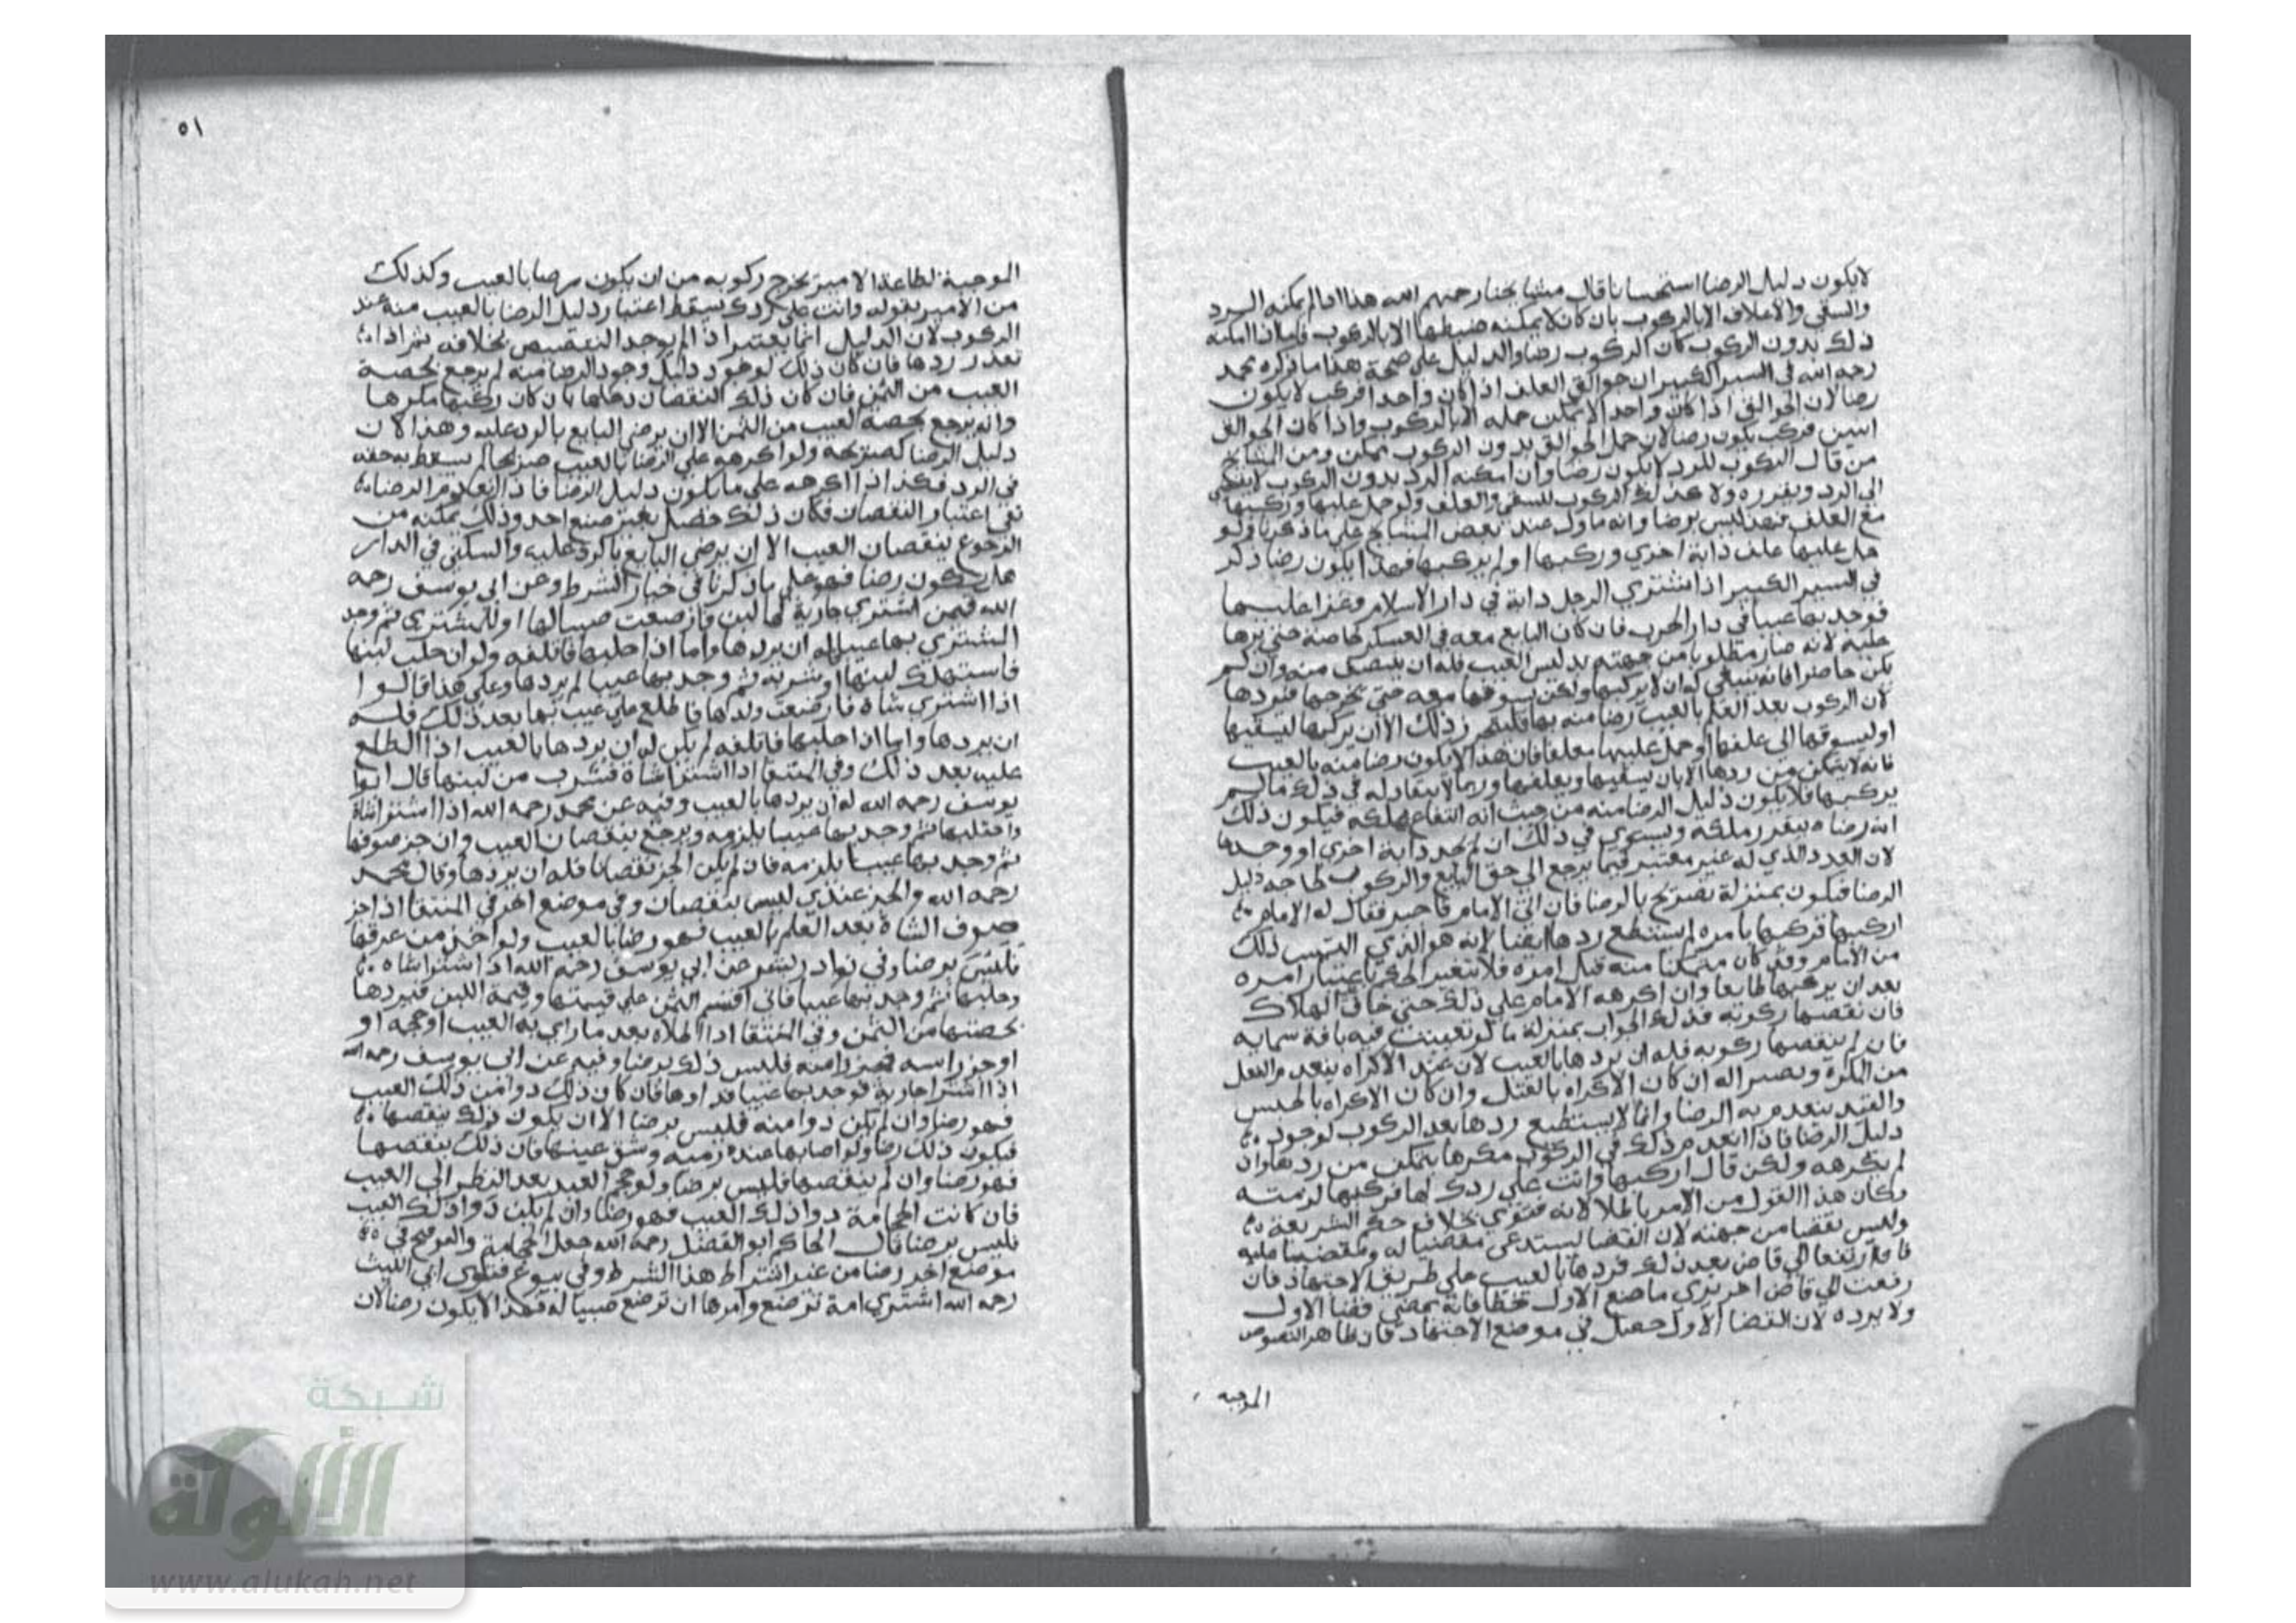 لا يكون دليل الرضا استحسانا قال مشايخنا رحمهم الله هذا اذا لم يمكنه الرد
والسقي والاعلاف الا بالركوب بان كان لا يمكنه ضبطها الا بالركوب فاما اذا امكنه
ذلك بدون الركوب كان الركوب رضا والدليل على صحة هذا ما ذكره محمد
رحمه الله في السير الكبير ان جوالق العلف اذا كان واحدا فركب لا يكون
رضا لان الجوالق اذا كان واحدا لا يمكن حمله الا بالركوب واذا كان الجوالق
اثنين فركب يكون رضا لان حمل الجوالق بدون الركوب يمكن ومن المشايخ
من قال الركوب للرد لا يكون رضا وان امكنه الرد بدون الركوب
الى الرد ويقرره ولا كذلك الركوب للسقي والعلف ولو حمل عليها وركبها
مع العلف فهذا ليس برضا وانه ماول عند بعض المشايخ على ما ذكرنا ولو
حمل عليها علف دابة اخرى وركبها او لم يركبها فهذا يكون رضا ذكر
في السير الكبير اذا اشترى الرجل دابة في دار الاسلام وغزا عليها
فوجد بها عيبا في دار الحرب فان كان البايع معه في العسكر خاصمه حتى يردها
عليه لانه صار مظلوما من جهته بدليس العيب فله ان ينتصف منه وان لم
يكن حاضرا فانه ينبغي له ان لا يركبها ولكن يسوقها معه حتى يخرجها فيردها
لان الركوب بعد العلم بالعيب رضا منه بها فليتحرز ذلك الا ان يركبها ليسقيها
او ليسوقها الى علفها او حمل عليها معلفا فان هذا لا يكون رضا منه بالعيب
فانه لا يتمكن من ردها الا بان يسقيها ويعلفها وربما لا ينقاد له في ذلك ما لم
يركبها فلا يكون دليل الرضا منه من حيث انه انتفاع بملكه فيكون ذلك
انه رضاه بتقرر ملكه ويستوي في ذلك ان لم يجد دابة اخرى او وجدها
لان العذر الذي له غير معتبر فيما يرجع الى حق البايع والركوب لحاجه دليل
الرضا فيكون بمنزلة تصريح بالرضا فان اتى الامام فاخبره فقال له الامام
اركبها فركبها بامره لم يستطع ردها ايضا لانه هو الذي التمس ذلك
من الامام وقد كان متمكنا منه قبل امره فلا يتغير الحكم باعتبار امره
بعد ان يركبها طايعا وان اكرهه الامام على ذلك حتى خاف الهلاك
فان نقصها ركوبه فذلك الجواب بمنزلة ما لو تعيبت فيه بافة سماويه
فان لم ينقصها ركوبه فله ان يردها بالعيب لان عند الاكراه ينعدم الفعل
من المكره ويصير اله ان كان الاكراه بالقتل وان كان الاكراه بالحبس
والقيد ينعدم به الرضا وانما لا يستطيع ردها بعد الركوب لوجود
دليل الرضا فاذا انعدم ذلك في الركوب مكرها يتمكن من ردها وان
لم يكرهه ولكن قال اركبها وانت على ردك لها فركبها لزمته
وكان هذا القول من الامير باطلا لانه فتوى بخلاف حكم الشريعة
وليس بقضا من جهته لان القضا يستدعي مقضيا له ومقضيا عليه
فاذا ارتفعا الى قاض بعد ذلك فردها بالعيب على طريق الاجتهاد فان
رفعت الى قاض اخر يرى ما صنع الاول خطا فانه يمضي قضا الاول
ولا يرده لان القضا الاول حصل في موضع الاجتهاد فان ظاهر النصوص
الموجبه
٥١
الموجبة لطاعة الامير تخرج ركوبه من ان يكون رضا بالعيب وكذلك
من الامير بقوله وانت على ردك يسقط اعتبار دليل الرضا بالعيب منه عند
الركوب لان الدليل انما يعتبر اذا لم يوجد التنصيص بخلافه ثم اذا
تعذر ردها فان كان ذلك لوجود دليل وجود الرضا منه لم يرجع بحصة
العيب من الثمن فان كان ذلك النقصان دخلها بان كان ركبها مكرها
وانه يرجع بحصة العيب من الثمن الا ان يرضى البايع بالرد عليه وهذا لان
دليل الرضا كصريحه ولو اكرهه على الرضا بالعيب صريحا لم يسقط به حقه
في الرد فكذا اذا اكرهه على ما يكون دليل الرضا فاذا انعدم الرضا
بقي اعتبار النقصان فكان ذلك حصل بغير صنع احد وذلك يمكنه من
الرجوع بنقصان العيب الا ان يرضى البايع بالرد عليه والسكنى في الدار
هل يكون رضا فهو على ما ذكرنا في خيار الشرط وعن ابي يوسف رحمه
الله فيمن اشترى جارية لها لبن فارضعت صبيا لها او للمشتري ثم وجد
المشتري بها عيبا له ان يردها واما اذا حلبها فاتلفه ولو ان حلب لبنها
فاستهلك لبنها او شربه ثم وجد بها عيبا لم يردها وعلى هذا قالوا
اذا اشترى شاة فارضعت ولدها فاطلع على عيب بها بعد ذلك فله
ان يردها واما اذا حلبها فاتلفه لم يكن له ان يردها بالعيب اذا اطلع
عليه بعد ذلك وفي المنتقا اذا اشترا شاة فشرب من لبنها قال ابو
يوسف رحمه الله له ان يردها بالعيب وفيه عن محمد رحمه الله اذا اشترا شاة
واحتلبها ثم وجد بها عيبا يلزمه ويرجع بنقصان العيب وان جز صوفها
ثم وجد بها عيبا يلزمه فان لم يكن الجز نقصانا فله ان يردها وقال محمد
رحمه الله والجز عندي ليس بنقصان وفي موضع اخر في المنتقا اذا جز
صوف الشاة بعد العلم بالعيب فهو رضا بالعيب ولو اخذ من عرفها
فليس برضا وفي نوادر بشر عن ابي يوسف رحمه الله اذا اشترا شاه
وحلبها ثم وجد بها عيبا فاني اقسم الثمن على قيمتها وقيمة اللبن فيردها
بحصتها من الثمن وفي المنتقا اذا اطلاه بعد ما راى به العيب او حجمه او
او جز راسه فليس ذلك برضا وفيه عن ابي يوسف رحمه الله
اذا اشترا جارية فوجد بها عيبا فداواها فان كان ذلك دوا من ذلك العيب
فهو رضا وان لم يكن دوا منه فليس برضا الا ان يكون ذلك ينقصها
فيكون ذلك رضا ولو اصابها عنده وشق عينها فان ذلك ينقصها
فهو رضا وان لم ينقصها فليس برضا ولو حجم العبد بعد النظر الى العيب
فان كانت الحجامة دوا ذلك العيب فهو رضا وان لم يكن دوا ذلك العيب
فليس برضا قال الحاكم ابو الفضل رحمه الله جعل الحجامة في
موضع اخر رضا من غير اشتراط هذا الشرط وفي بيوع فتاوى ابي الليث
رحمه الله اشترى امة ترضع وامرها ان ترضع صبيا له فهذا لا يكون رضا لان
شبكة
الألوكة
www.alukah.net